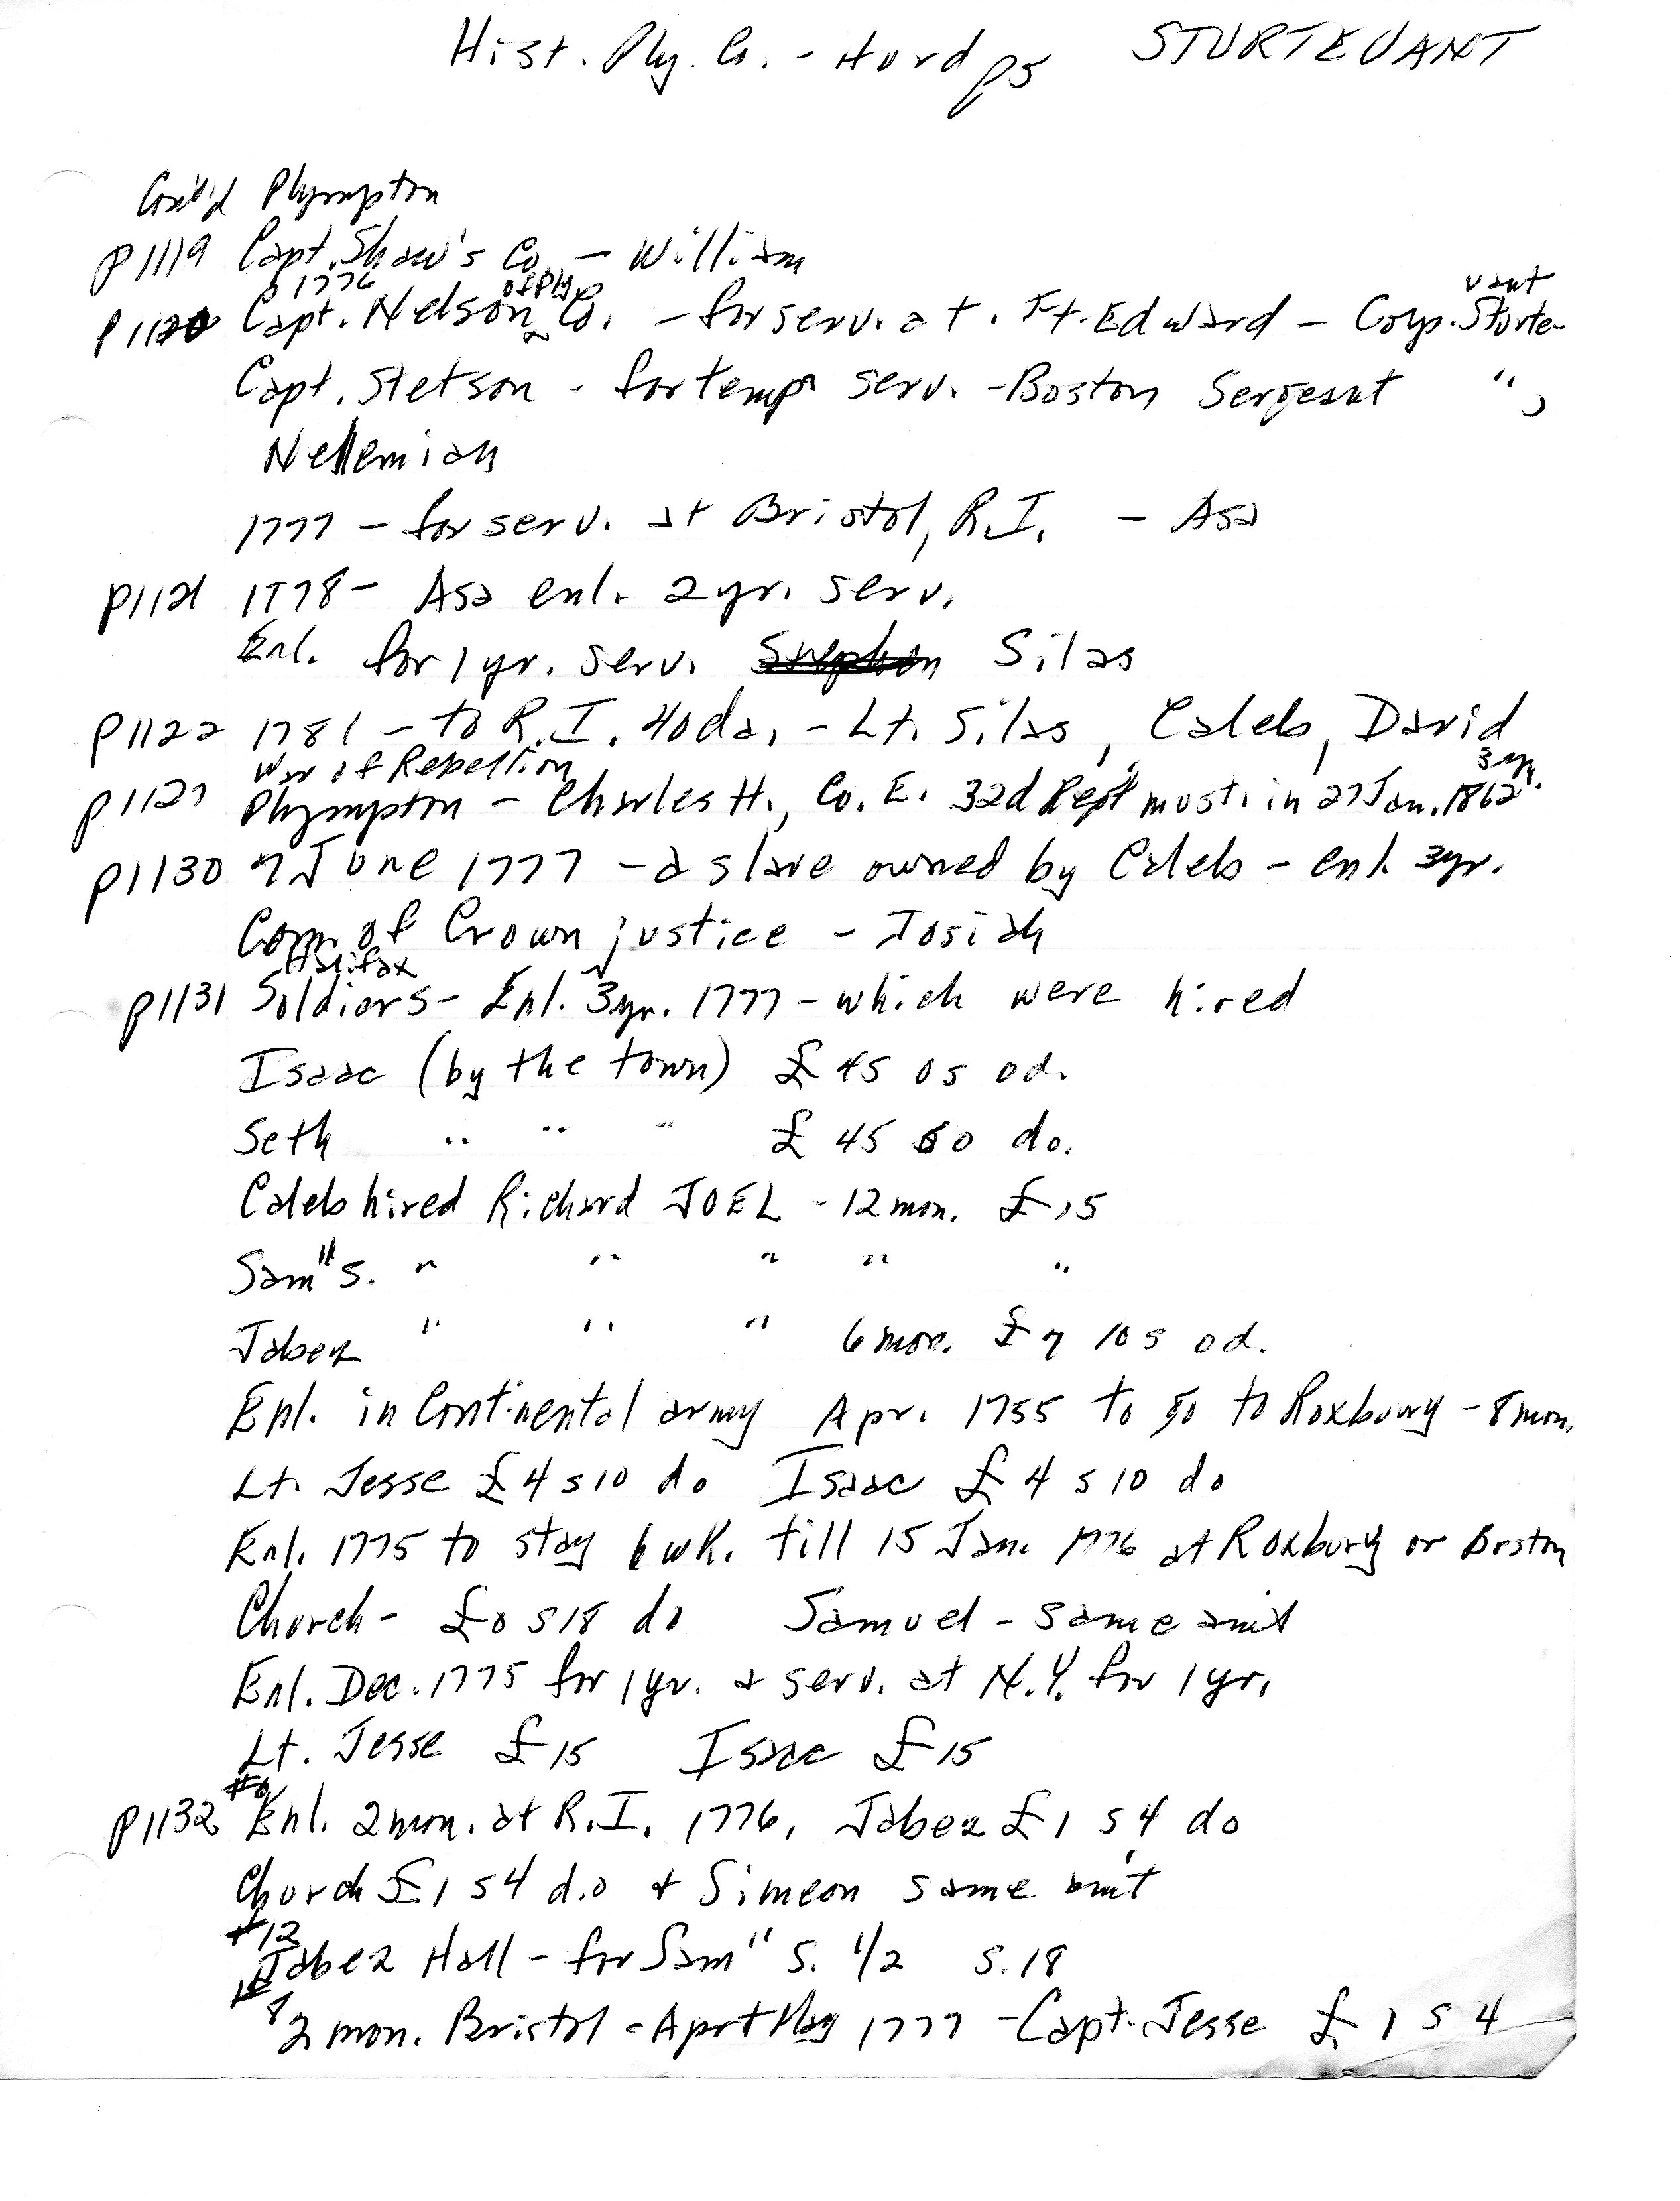 Hist. Ply. Co. - Hurd p5 STURTEVANT
Cont'd Plympton
p1119 Capt. Shaw's Co. - William
1776 of Ply vant
p1120 Capt. Nelson Co. - for serv. at. Ft. Edward - Corp. Sturte-
Capt. Stetson - for temp serv. - Boston Sergeant " ,
Nehemiah
1777 - for serv. at Bristol, R.I. - Asa
p1121 1778 - Asa enl. 2 yr. serv.
Enl. for 1 yr. serv. Silas
p1122 1781 - to R.I. 40 da. - Lt. Silas, Caleb, David
War of Rebellion 3 yr.
p1127 Plympton - Charles H., Co. E. 32d Regt must. in 27 Jan. 1862
p1130 7 June 1777 - a slave owned by Caleb - enl. 3 yr.
Com. of Crown justice - Josiah
Halifax
p1131 Soldiers - Enl. 3 yr. 1777 - which were hired
Isaac (by the town) £ 45 0s 0d.
Seth " " " £ 45 s0 do.
Caleb hired Richard JOEL - 12 mon. £ 15
Sam'll S. " " " " "
Jabez " " " 6 mon. £ 7 10s 0d.
Enl. in Continental army Apr. 1755 to go to Roxbury - 8 mon.
Lt. Jesse £ 4 s10 do Isaac £ 4 s10 do
Enl. 1775 to stay 6 wk. till 15 Jan. 1776 at Roxbury or Boston
Church - £0 s18 do Samuel - same amt
Enl. Dec. 1775 for 1 yr. & serv. at N.Y. for 1 yr.
Lt. Jesse £ 15 Isaac £ 15
#6
p1132 Enl. 2 mon. at R.I. 1776, Jabez £ 1 s4 do
Church £ 1 s4 d.o & Simeon same am't
#12
Jabez Hall - for Sam'll S. 1/2 s. 18
#8 2 mon. Bristol - Apr + May 1777 - Capt. Jesse £ 1 s 4